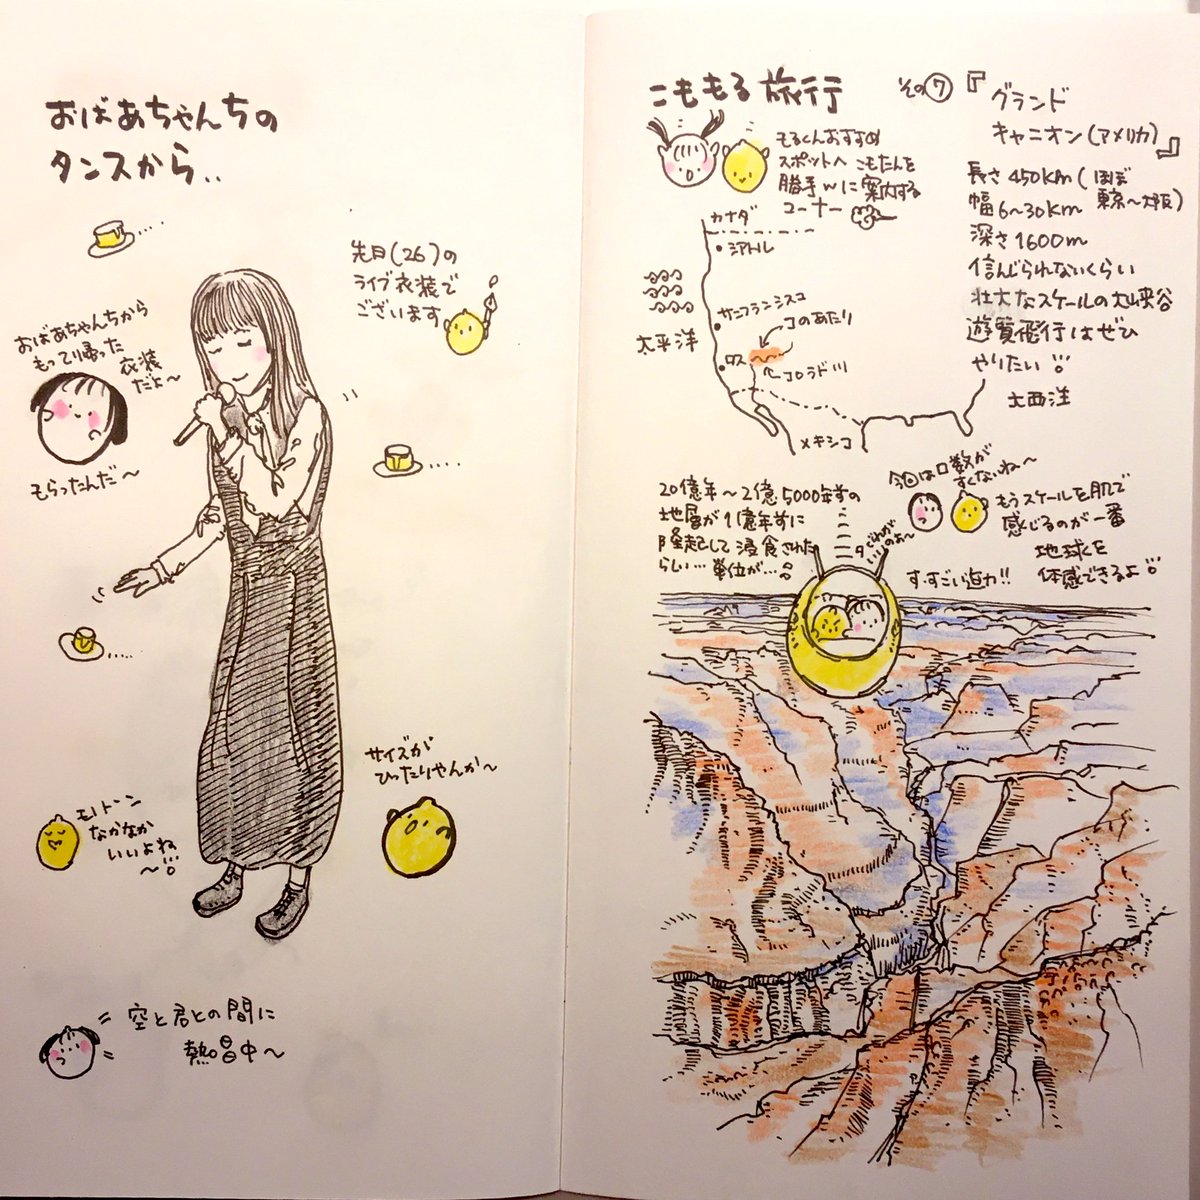 おばあちゃんちの
タンスから..
先日(26)の
ライブ衣装で
ございます
おばあちゃんちから
もって帰った
衣装
だよ〜
もらったんだ〜
サイズが
ぴったりやんか〜
モノトーン
なかなか
いいよね
〜
空と君との間に
熱唱中〜
こももる旅行
その⑦
『グランド
キャニオン(アメリカ)』
もるくんおすすめ
スポットへ こもたんを
勝手wに案内する
コーナー
長さ450km(ほぼ
東京〜大阪)
幅6〜30km
深さ1600m
信じられないくらい
壮大なスケールの大峡谷
遊覧飛行はぜひ
やりたい
カナダ
シアトル
サンフランシスコ
このあたり
太平洋
ロス
コロラド川
大西洋
メキシコ
今回は口数が
すくないね〜
もうスケールを肌で
感じるのが一番
地球を
体感できるよ
20億年〜2億5000年前の
地層が1億年前に
隆起して浸食された
らしい…単位が…
す・すごい迫力!!